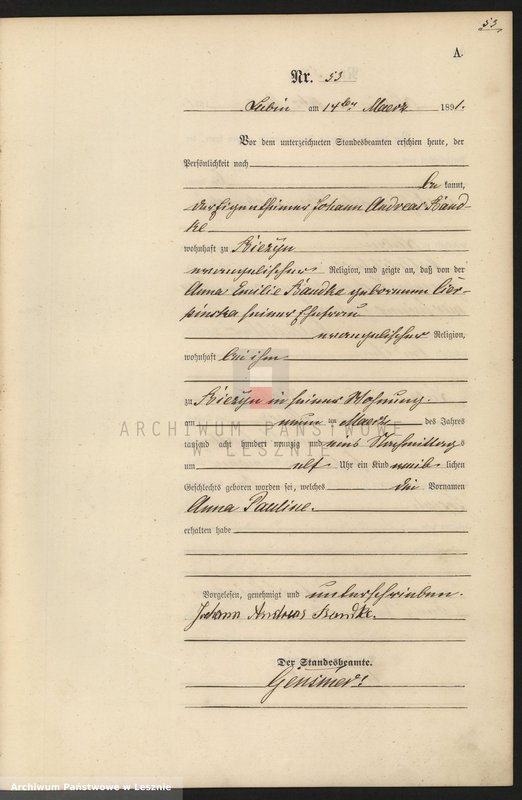 53
A.
Nr. 53
Lubin am 14ten Maerz 1891.
Vor dem unterzeichneten Standesbeamten erschien heute, der
Persönlichkeit nach
be kannt,
der Eigenthümer Johann Andreas Baud-
ke
wohnhaft zu
evangelischer Religion, und zeigte an, daß von der
Anna Emilie geborenen Cier-
pinska seiner Ehefrau
evangelischer Religion,
wohnhaft bei ihm
zu in seiner Wohnung.
am neun ten Maerz des Jahres
tausend acht hundert neunzig und eins Nachmittags
um elf Uhr ein Kind weib lichen
Geschlechts geboren worden sei, welches die Vornamen
Anna Pauline.
erhalten habe
Vorgelesen, genehmigt und unterschrieben.
Johann Andreas
Der Standesbeamte.
ARCHIWUM PAŃSTWOWE
W LESZNIE
Archiwum Państwowe w Lesznie